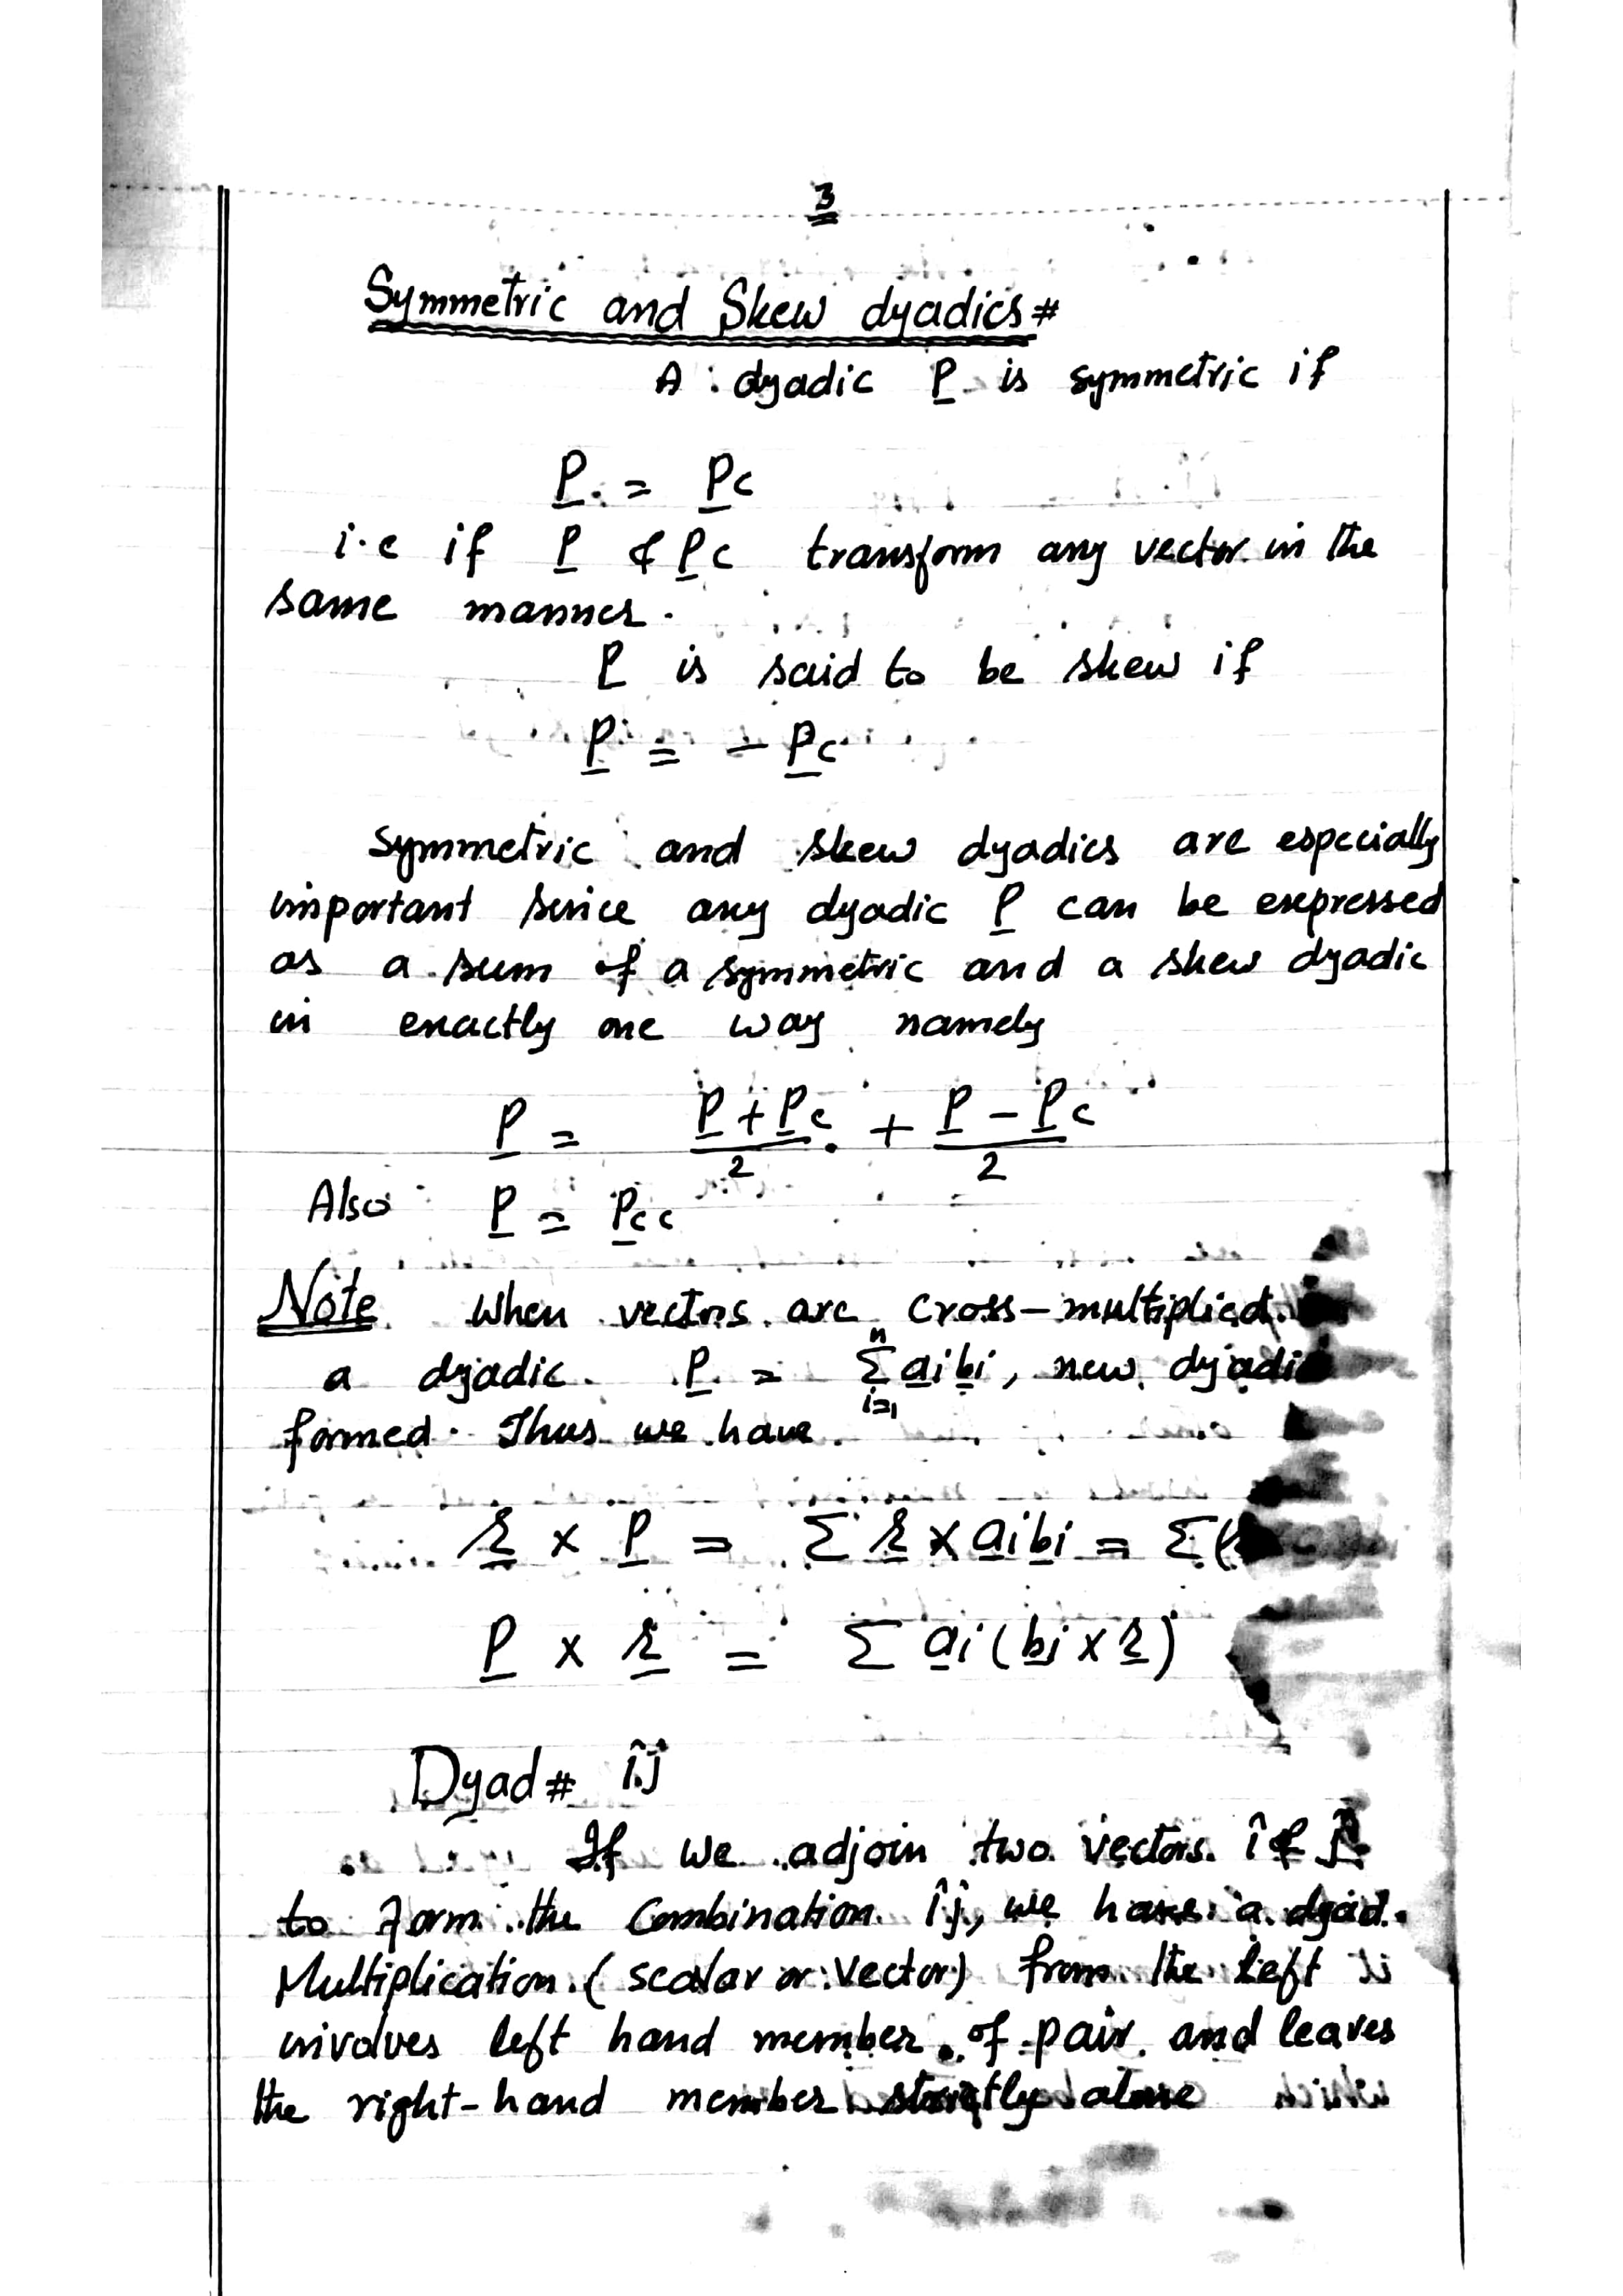 3
Symmetric and Skew dyadics #
A dyadic P is symmetric if
P = Pc
i.e if P & Pc transform any vector in the
same manner.
P is said to be skew if
P = - Pc
Symmetric and skew dyadics are especially
important since any dyadic P can be expressed
as a sum of a symmetric and a skew dyadic
in exactly one way namely
P = P + Pc / 2 + P - Pc / 2
Also P = Pcc
Note When vectors are cross-multiplied
a dyadic P = n Σ i=1 ai bi, new
formed. Thus we have
r × P = Σ r × ai bi = Σ(
P × r = Σ ai (bi × r)
Dyad # îĵ
If we adjoin two vectors î & ĵ
to form the combination îĵ, we have a dyad.
Multiplication (scalar or vector) from the left
involves left hand member of pair and leaves
the right-hand member strictly alone